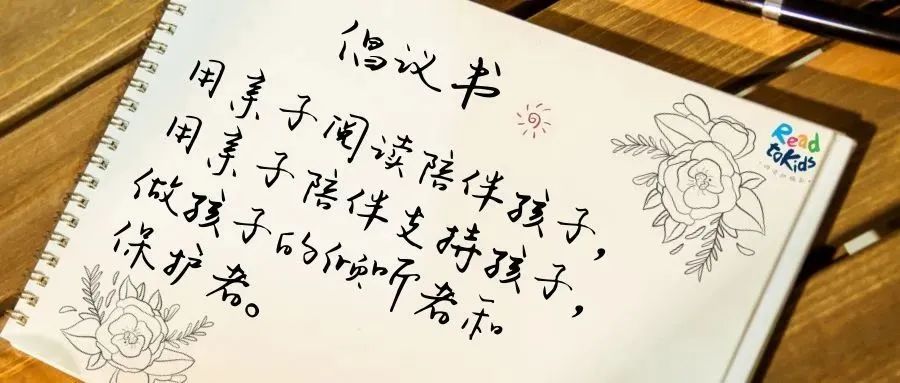 倡议书
用亲子阅读陪伴孩子，
用亲子陪伴支持孩子，
做孩子的倾听者和
保护者。
Read
toKids